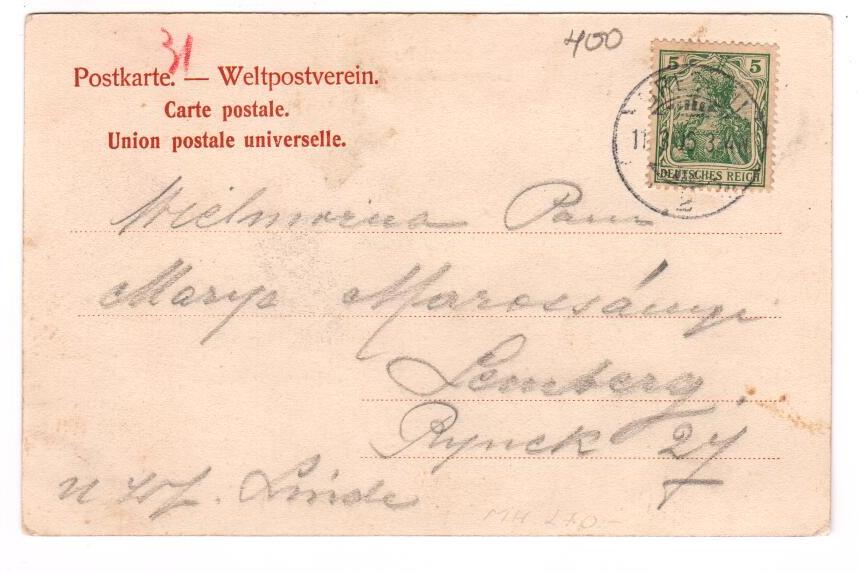 31
400
Postkarte. — Weltpostverein.
Carte postale.
Union postale universelle.
5 5
DEUTSCHES REICH
2
Wielmożna Pani
Marya Marossányi
Lemberg.
Rynek 27
Linde